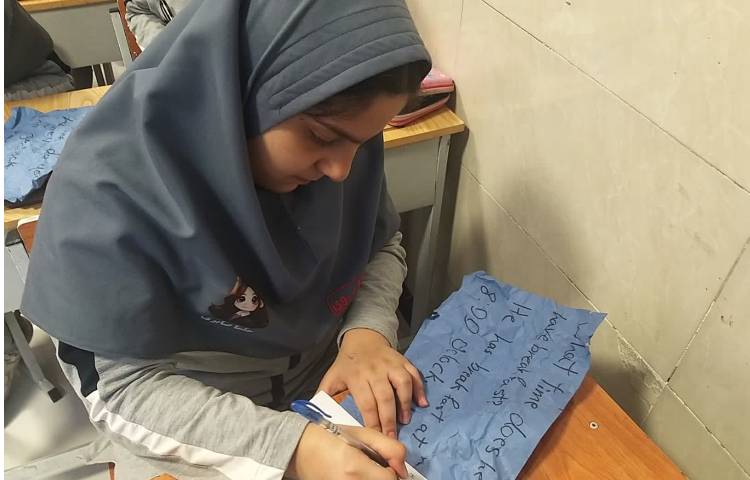 what time does he
have breakfast?
He has break fast at
8:00 O'clock